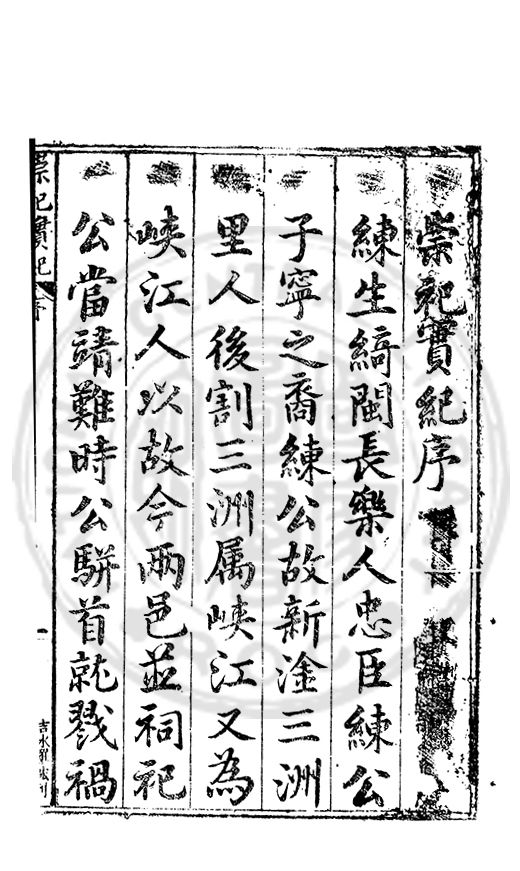 崇祀實紀序
練生綺閩長樂人忠臣練公
子寧之裔練公故新淦三洲
里人後割三洲属峽江又為
峽江人以故今兩邑並祠祀
公當靖難時公駢首就戮禍
崇祀實紀
序
一
吉水
刊